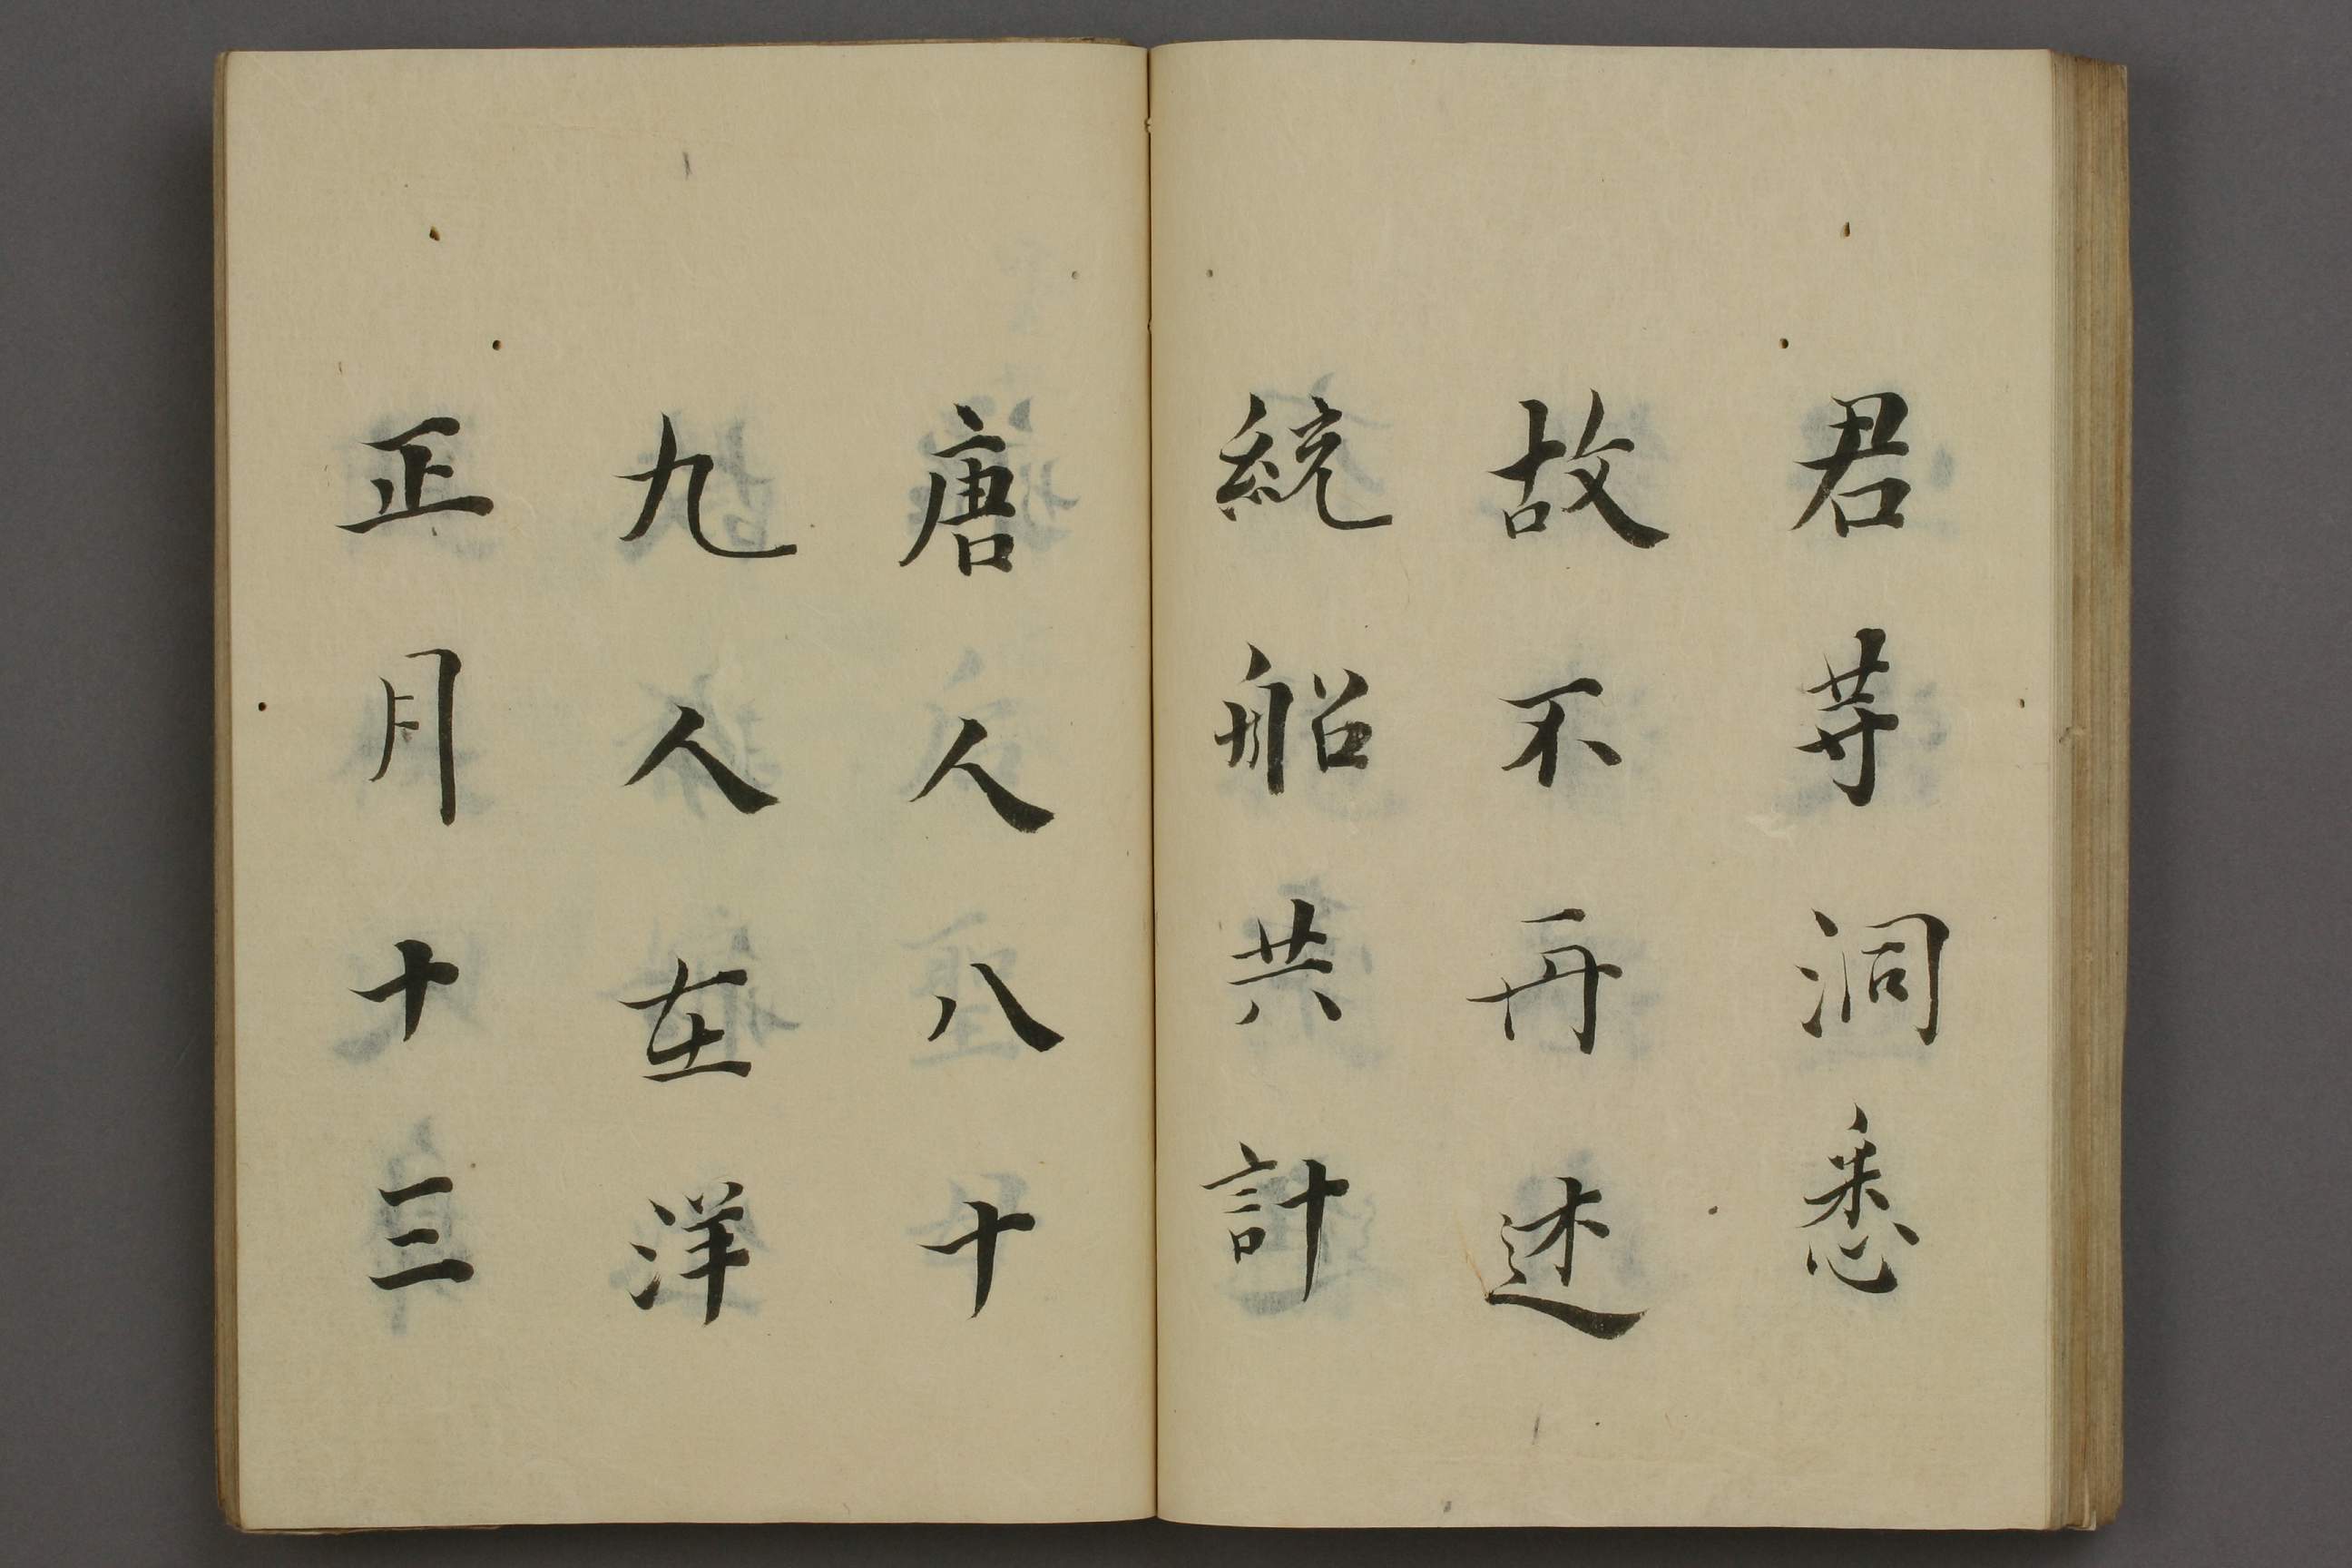 君等洞悉
故不再述
統船共計
唐人八十
九人在洋
正月十三